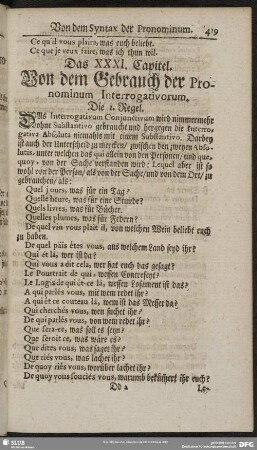 Von dem Syntax der Pronominum. 419
Ce qu'il vous plaira, was euch beliebt.
Ce que je veux faire, was ich thun will.
Das XXXI. Capitel.
Von dem Gebrauch der Pro-
nominum Interrogativorum.
Die 1. Regel.
Das Interrogativum Conjunctivum wird nimmermehr
ohne Substantivo gebraucht und hergegen die Interro-
gativa Absoluta niemahls mit einem Substantivo. Darbey
ist auch der Unterscheid zu mercken / zwischen den zweyen Abso-
lutis, unter welchen das qui allein von den Personen, und que,
quoy, von der Sache verstanden wird: Lequel aber ist so
wohl von der Person / als von der Sache / und von dem Ort / zu
gebrauchen / als:
Quel jours, was für ein Tag?
Quelle heure, was für eine Stunde?
Quels livres, was für Bücher.
Quelles plumes, was für Federn?
De quel vin vous plait il, von welchen Wein beliebt euch
zu haben.
De quel païs êtes vous, aus welchem Land seyd ihr?
Qui ét là, wer ist da?
Qui vous a dit cela, wer hat euch das gesagt?
Le Pourtrait de qui, wessen Conterfeyt?
Le Logis de qui ét-ce là, wessen Losament ist das?
A qui parlés vous, mit wem redet ihr?
A qui ét ce couteau là, wem ist das Messer da?
Qui cherchés vous, wen suchet ihr?
De qui parlés vous, von wem redet ihr?
Que sera-ce, was soll es seyn?
Que seroit ce, was wäre es?
Que dites vous, was saget ihr?
Que riés vous, was lachet ihr?
De quoy riés vous, worüber lachet ihr?
De quoy vous souciés vous, warumb bekümert ihr euch?
Dd 2 Le-
SLUB